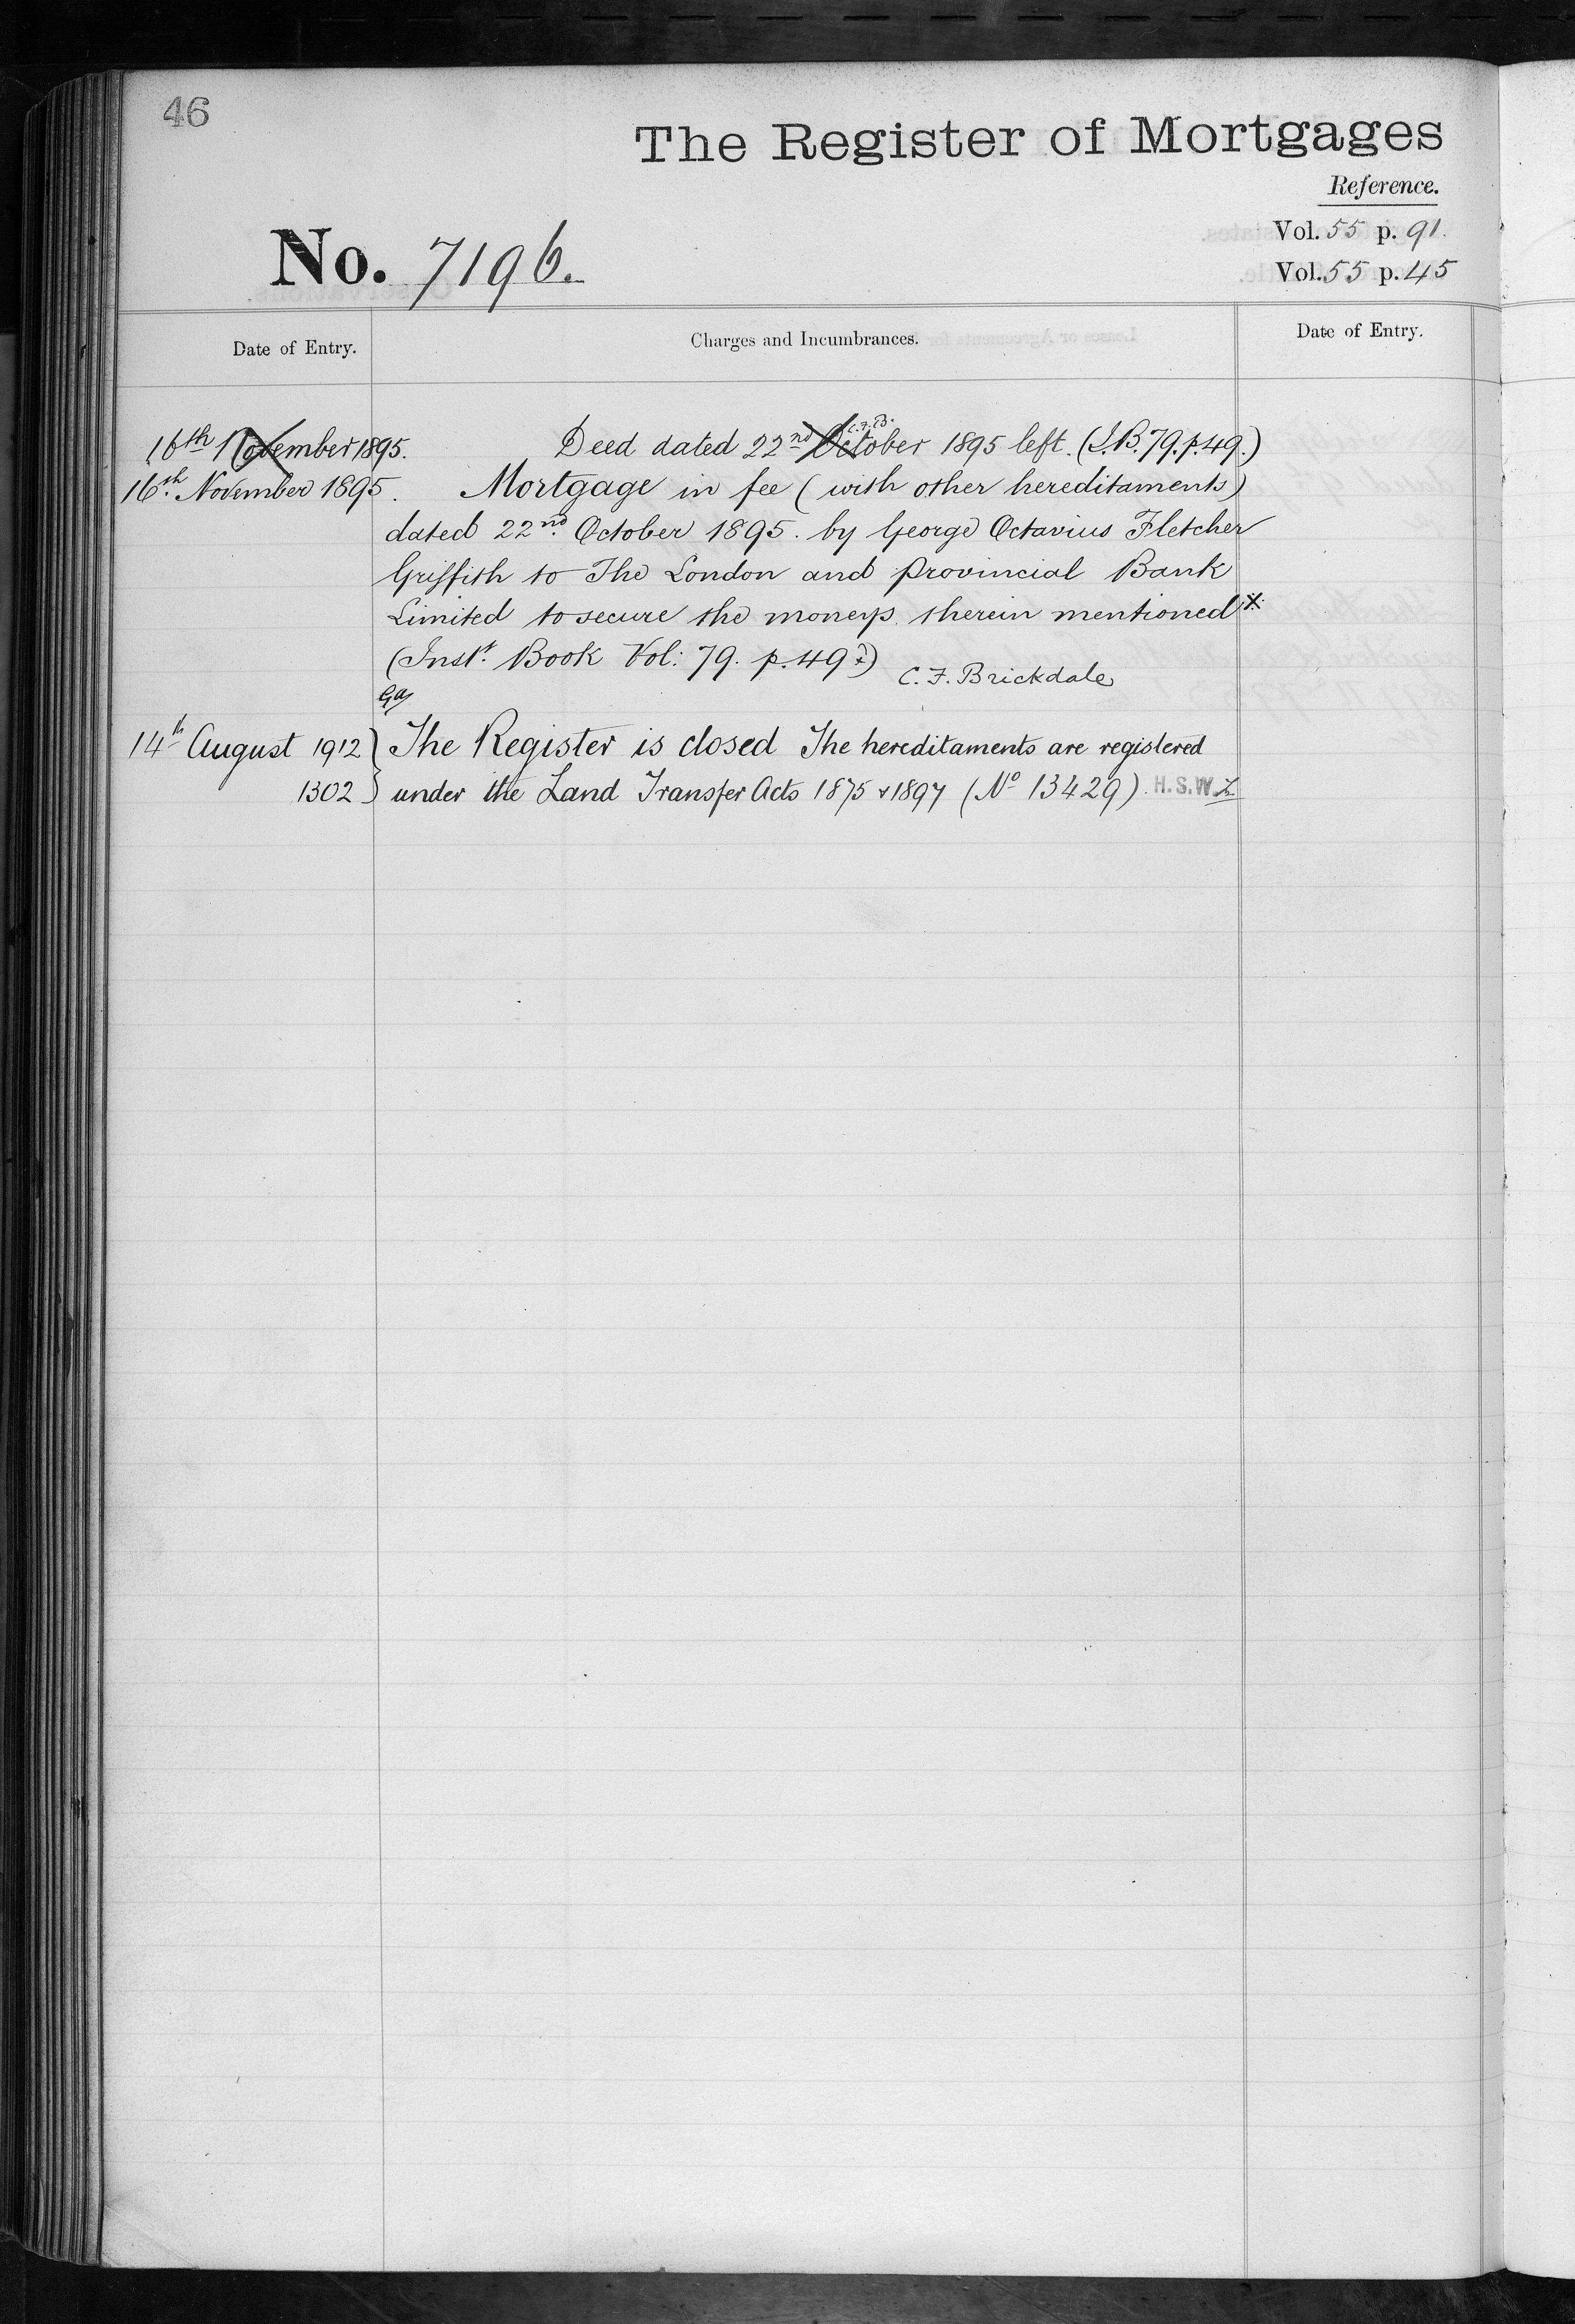 46
The Register of Mortgages
Reference.
Vol. 55 p. 91.
No. 7196.
Vol. 55 p. 45
Date of Entry.
Charges and Incumbrances.
Date of Entry.
C.F.B.
16th November 1895. Deed dated 22nd October 1895 left. (I.B. 79. p. 49.)
16th November 1895. Mortgage in fee (with other hereditaments)
dated 22nd October 1895. by George Octavius Fletcher
Griffith to The London and Provincial Bank
Limited to secure the moneys therein mentioned X
(Inst. Book Vol: 79. p. 49) C. F. Brickdale
14th August 1912 } The Register is closed The hereditaments are registered
1302 } under the Land Transfer Acts 1875 & 1897 (No 13429). H.S.W.